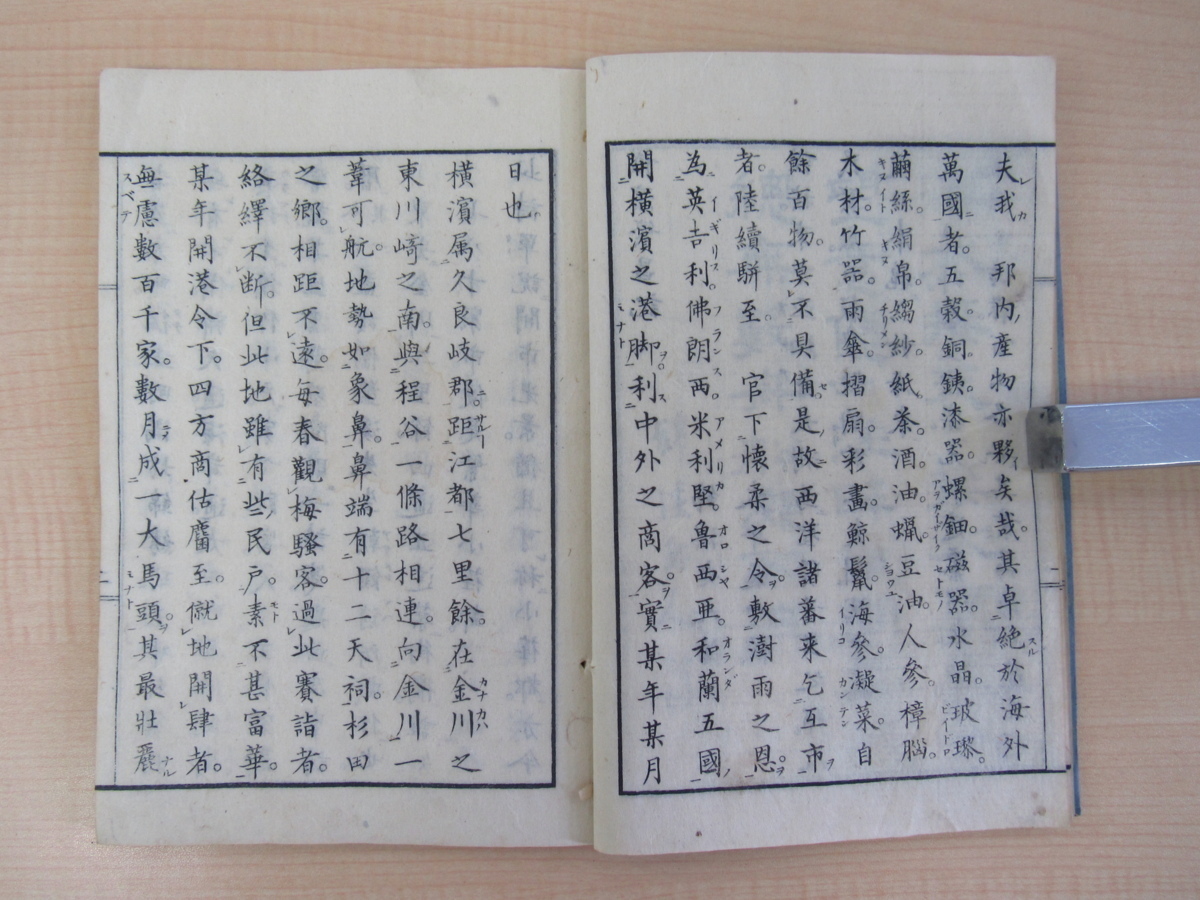 夫我 邦内産物亦夥矣哉。其卓絶於海外
萬國者。五穀。銅。銕。漆器。螺鈿。磁器。水晶。玻瓈。
繭絲。絹帛。縐紗。紙。茶。酒。油。蠟。豆油。人參。樟腦。
木材。竹器。雨傘。摺扇。彩畫。鯨鬣。海參。凝菜。自
餘百物。莫不具備。是故西洋諸蕃来乞互市
者。陸續駢至。 官下懷柔之令。敷澍雨之恩。
為英吉利。佛朗西。米利堅。魯西亜。和蘭五國
開橫濱之港脚。利中外之商客。實某年某月
日也。
橫濱属久良岐郡。距江都七里餘。在金川之
東川﨑之南。與程谷一條路相連。向金川一
葦可航。地勢如象鼻。鼻端有十二天祠。杉田
之鄉。相距不遠。每春觀梅騷客。過此賽詣者。
絡繹不断。但此地雖有些民戶。素不甚富華。
某年開港令下。四方商估麕至。僦地開肆者。
無慮數百千家。數月成一大馬頭。其最壯麗